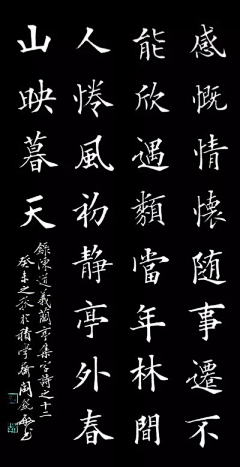 感慨情懷随事遷不
能欣遇類當年林間
人惓風初静亭外春
山映暮天
錄陳道義蘭亭集字詩之十二
癸未之秋於積學齋周書